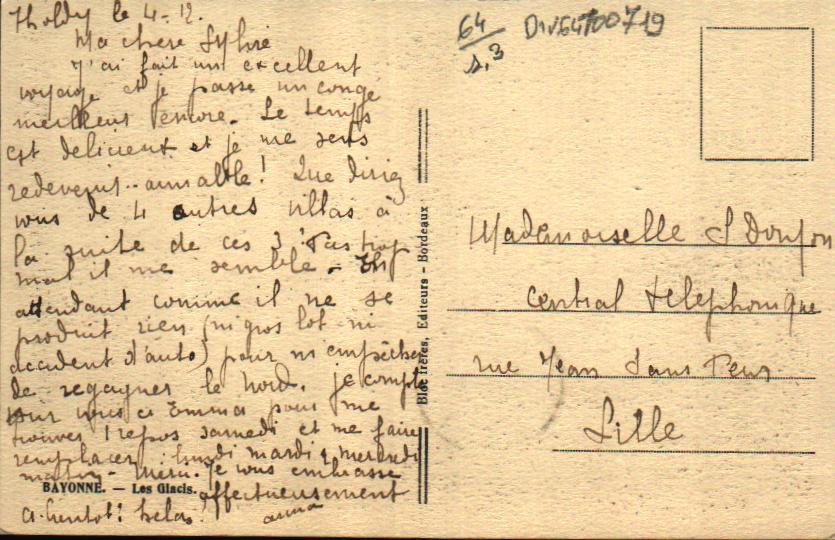 le 4-12.
Ma chère Sylvie
J'ai fait un excellent
voyage et je passe un congé
meilleur encore. Le temps
est délicieux et je me sens
redevenir.. aimable! Que diriez
vous de 4 autres villas à
la suite de ces 3? Pas trop
mal il me semble. En
attendant comme il ne se
produit rien (ni gros lot ni
accident d'auto) pour m'empêcher
de regagner le Nord. je compte
sur vous à Emma pour me
trouver 1 repos samedi et me faire
remplacer lundi mardi & mercredi
matin - Merci. Je vous embrasse
affectueusement
A bientôt! hélas!
BAYONNE. — Les Glacis.
Bloc frères, Editeurs - Bordeaux
64
Div64100719
Mademoiselle S Donjon
Central téléphonique
rue Jean Sans Peur
Lille